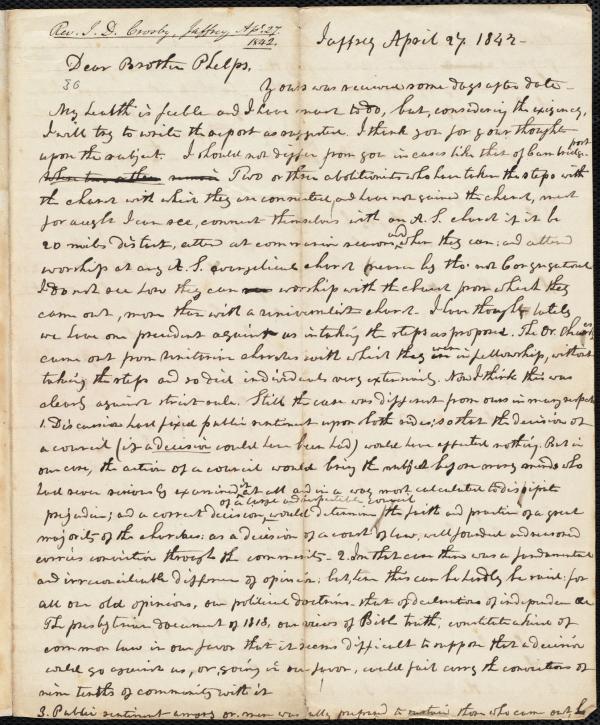 Rev. J. D. Crosby, Jaffrey Ap. 27.
1842.
Jaffrey April 27. 1842-
Dear Brother Phelps,
36
Yours was received some days after date-
My health is feeble and I have much to do, but, considering the exigency,
I will try to write the report as suggested. I think you for your thoughts
upon the subject. I should not differ from you in cases like that of Cambridge port
Two or three abolitionists who have taken the steps with
the church with which they are connected, and have not gained the church, must
for aught I can see, connect themselves with an A. S. church if it be
20 miles distant, attend at communion seasons, and when they can; and attend
worship at any A. S. evangelical church near by tho' not Congregational
I do not see how they can worship with the church from which they
came out, more than with a universalist church- I have thought lately
we have one precedent against us in taking the steps as proposed. The Or. Churches
came out from Unitarian churches with which they were in fellowship, without
taking the steps and so did individuals very extensively. Now I think this was
clearly against strict rule. Still the case was different from ours in many respects
1. Discussion had fixed public sentiment upon both sides; so that the decision of
a council (if a decision could have been had) would have effected nothing. But in
our case, the action of a council would bring the subject before many minds who
had never seriously examined it at all and in a way most calculated to dissipate
prejudice; and a correct decision, of a large and respectable council would determine the faith and practice of a great
majority of the churches: as a decision of a court of law, well founded and reasoned
carries conviction through the community- 2. In that case there was a fundamental
and irreconcilable difference of opinion; but here this can be hardly be said: for
all our old opinions, our political doctrines- that of declaration of independence
The presbyterian document of 1818, our views of Bible truth, constitute a kind of
common law in our favor that it seems difficult to suppose that a decision
would go against us, or, going in our favor, could fail carry the convictions of
nine tenths of community with it
3. Public sentiment among or. men was fully prepared to sustain those who came out